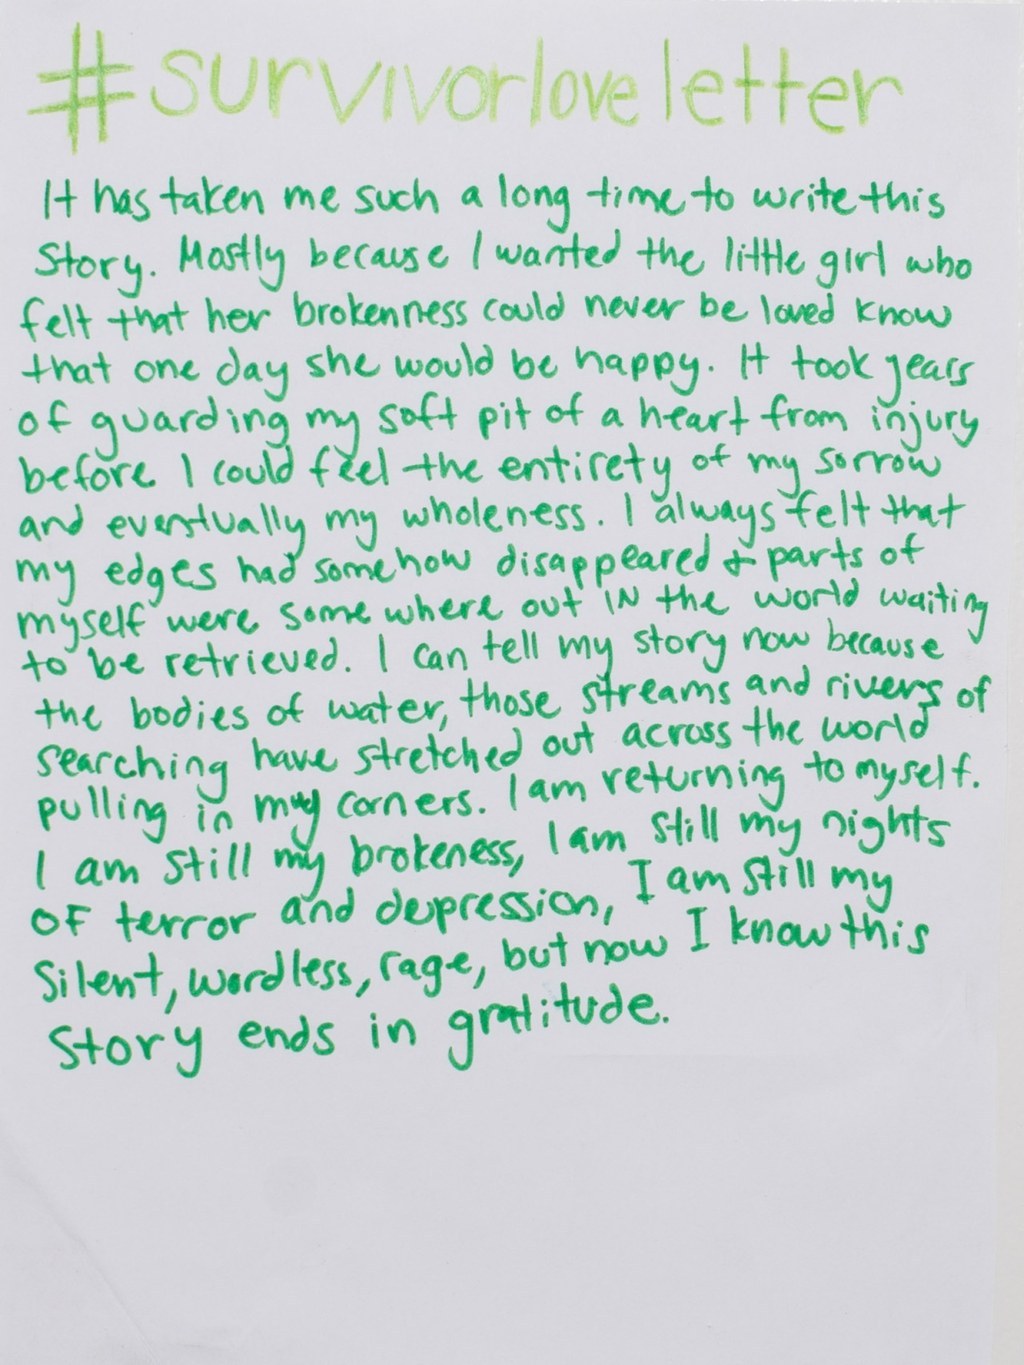 #survivorloveletter
It has taken me such a long time to write this
Story. Mostly because I wanted the little girl who
felt that her brokenness could never be loved know
that one day she would be happy. It took years
of guarding my soft pit of a heart from injury
before I could feel the entirety of my sorrow
and eventually my wholeness. I always felt that
my edges had somehow disappeared & parts of
myself were some where out IN the world waiting
to be retrieved. I can tell my story now because
the bodies of water, those streams and rivers of
searching have stretched out across the world
pulling in my corners. I am returning to myself.
I am still my brokeness, I am still my nights
OF terror and depression, I am still my
Silent, wordless, rage, but now I know this
Story ends in gratitude.